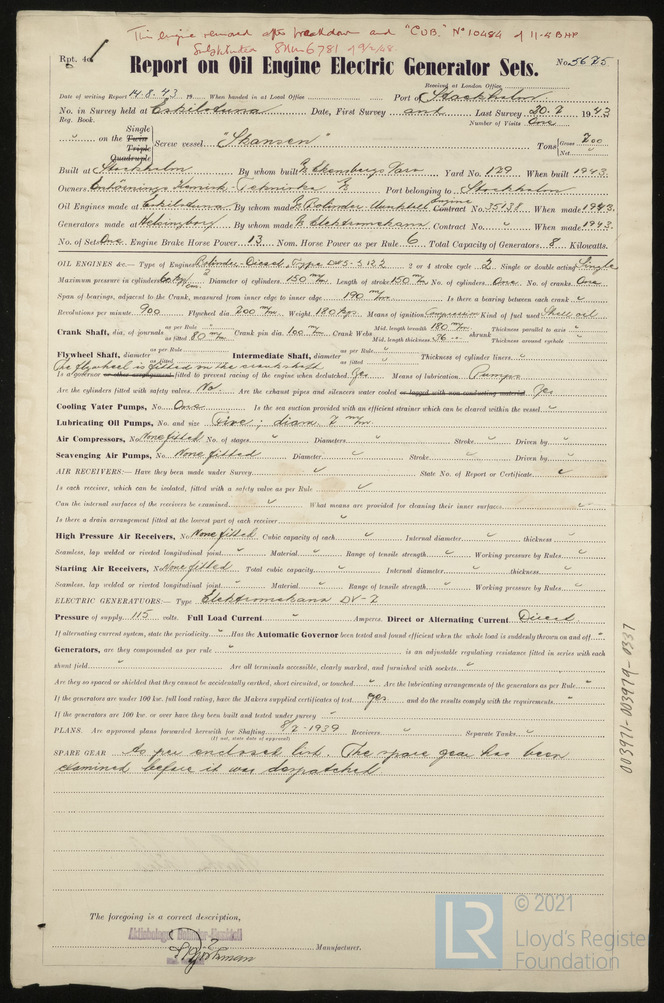 This engine removed after breakdown and "CUB." No 10484 of 11.4 BHP
8 Nm 6781 19/2/48
Rpt. 4c.
Report on Oil Engine Electric Generator Sets.
No. 5625
Received at London Office
Date of writing Report 14.8.43 19 When handed in at Local Office Port of Stockholm
No. in Survey held at Eskilstuna Date, First Survey and Last Survey 20.7 1943
Reg. Book. Number of Visits One
" on the Single Twin Triple Quadruple Screw vessel "Skansen" Tons Gross 700 Net "
Built at Stockholm By whom built Ekensbergs Varv Yard No. 129 When built 1943
Owners Tekniska Port belonging to Stockholm
Oil Engines made at Eskilstuna By whom made Bolinder Munktell Engine Contract No. 35138 When made 1943
Generators made at Helsingborg By whom made Elektromekano Contract No. " When made 1943.
No. of Sets One Engine Brake Horse Power 13 Nom. Horse Power as per Rule 6 Total Capacity of Generators 8 Kilowatts.
OIL ENGINES &c.— Type of Engines Bolinder-Diesel, Type 2 or 4 stroke cycle 2 Single or double acting Single
Maximum pressure in cylinders kg/cm2 Diameter of cylinders 150 m/m Length of stroke 150 m/m No. of cylinders One No. of cranks One
Span of bearings, adjacent to the Crank, measured from inner edge to inner edge 190 m/m Is there a bearing between each crank "
Revolutions per minute 900 Flywheel dia. 700 m/m Weight 180 Kgs. Means of ignition Compression Kind of fuel used Shell oil
Crank Shaft, dia. of journals as per Rule " as fitted 80 m/m Crank pin dia. 100 m/m Crank Webs Mid. length breadth 180 m/m Mid. length thickness 36 " shrunk Thickness parallel to axis " Thickness around eyehole "
Flywheel Shaft, diameter as per Rule as fitted Intermediate Shaft, diameter as per Rule " as fitted " Thickness of cylinder liners "
The flywheel is fitted on the crankshaft
Is a governor or other arrangement fitted to prevent racing of the engine when declutched Yes Means of lubrication Pumps
Are the cylinders fitted with safety valves No Are the exhaust pipes and silencers water cooled or lagged with non-conducting material Yes
Cooling Water Pumps, No. One Is the sea suction provided with an efficient strainer which can be cleared within the vessel "
Lubricating Oil Pumps, No. and size Five; diam 7 m/m
Air Compressors, No. None fitted No. of stages " Diameters " Stroke " Driven by "
Scavenging Air Pumps, No. None fitted Diameter " Stroke " Driven by "
AIR RECEIVERS:— Have they been made under Survey " State No. of Report or Certificate "
Is each receiver, which can be isolated, fitted with a safety valve as per Rule "
Can the internal surfaces of the receivers be examined " What means are provided for cleaning their inner surfaces "
Is there a drain arrangement fitted at the lowest part of each receiver "
High Pressure Air Receivers, No. None fitted Cubic capacity of each " Internal diameter " thickness "
Seamless, lap welded or riveted longitudinal joint " Material " Range of tensile strength " Working pressure by Rules "
Starting Air Receivers, No. None fitted Total cubic capacity " Internal diameter " thickness "
Seamless, lap welded or riveted longitudinal joint " Material " Range of tensile strength " Working pressure by Rules "
ELECTRIC GENERATORS:— Type Elektromekano DV-7
Pressure of supply 115 volts. Full Load Current " Amperes. Direct or Alternating Current Direct
If alternating current system, state the periodicity " Has the Automatic Governor been tested and found efficient when the whole load is suddenly thrown on and off "
Generators, are they compounded as per rule " is an adjustable regulating resistance fitted in series with each
shunt field " Are all terminals accessible, clearly marked, and furnished with sockets "
Are they so spaced or shielded that they cannot be accidentally earthed, short circuited, or touched " Are the lubricating arrangements of the generators as per Rule "
If the generators are under 100 kw. full load rating, have the Makers supplied certificates of test yes and do the results comply with the requirements "
If the generators are 100 kw. or over have they been built and tested under survey "
PLANS. Are approved plans forwarded herewith for Shafting 8/2-1939 Receivers " Separate Tanks "
(If not, state date of approval)
SPARE GEAR As per enclosed list. The spare gear has been
examined before it was despatched
The foregoing is a correct description,
Aktiebolaget Bolinder-Munktell
Manufacturer.
003971-003979-0337
LR
© 2021
Lloyd's Register
Foundation